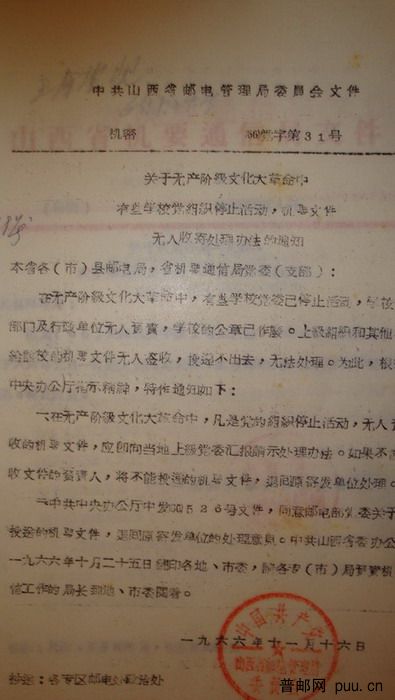 中共山西省邮电管理局委员会文件
机密 66党字第31号
关于无产阶级文化大革命中
有些学校党组织停止活动，机要文件
无人收寄处理办法的通知
本省各（市）县邮电局，省机要通信局党委（支部）：
在无产阶级文化大革命中，有些学校党委已停止活动，学校
部门及行政单位无人负责，学校的公章已作废。上级组织和其他
给该校的机要文件无人签收，投递不出去，无法处理。为此，根
中央办公厅指示精神，特作通知如下：
一、在无产阶级文化大革命中，凡是党的组织停止活动，无人
收的机要文件，应即向当地上级党委汇报请示处理办法。如果不
收文件的负责人，将不能投递的机要文件，退回原寄发单位处理。
二、中共中央办公厅中发 526号文件，同意邮电部党委关于
投递的机要文件，退回原寄发单位的处理意见。中共山西省委办公
一九六六年十月二十五日翻印各地、市委，请各专（市）局负责机
信工作的局长到地、市委阅看。
一九六六年十一月十六日
中国共产党
山西省邮电管理局
委员会
抄送：各专区邮电 政治处
普邮网 puu.cn